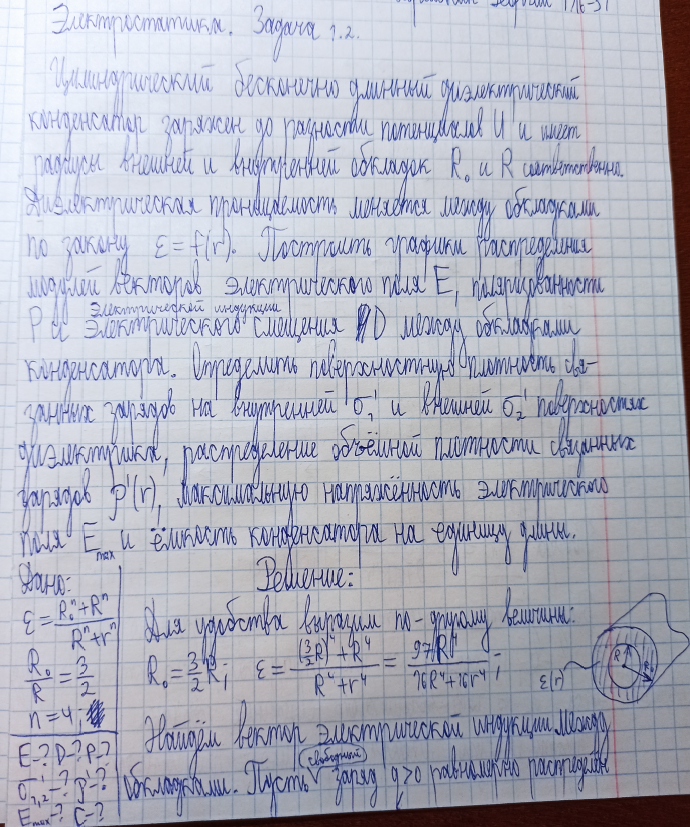 Электростатика. Задача 1.2.
Цилиндрический бесконечно длинный диэлектрический
конденсатор заряжен до разности потенциалов U и имеет
радиусы внешней и внутренней обкладок R₀ и R соответственно.
Диэлектрическая проницаемость меняется между обкладками
по закону ε = f(r). Построить графики распределения
модулей векторов электрического поля E, поляризованности
электрической индукции
P и электрического смещения D между обкладками
конденсатора. Определить поверхностную плотность свя-
занных зарядов на внутренней σ₁' и внешней σ₂' поверхностях
диэлектрика, распределение объёмной плотности связанных
зарядов ρ'(r), максимальную напряжённость электрического
поля E max и ёмкость конденсатора на единицу длины.
Дано:
ε = (R₀ⁿ + Rⁿ)/(Rⁿ + rⁿ)
R₀/R = 3/2
n = 4;
E-? D-? P-?
σ'₁,₂-? ρ'-?
E max-? C-?
Решение:
Для удобства выразим по-другому величины:
R₀ = 3/2 R; ε = ((3/2 R)⁴ + R⁴)/(R⁴ + r⁴) = 97R⁴/(16R⁴ + 16r⁴);
ε(r) R R₀
Найдём вектор электрической индукции между
свободный
обкладками. Пусть заряд q>0 равномерно распределён